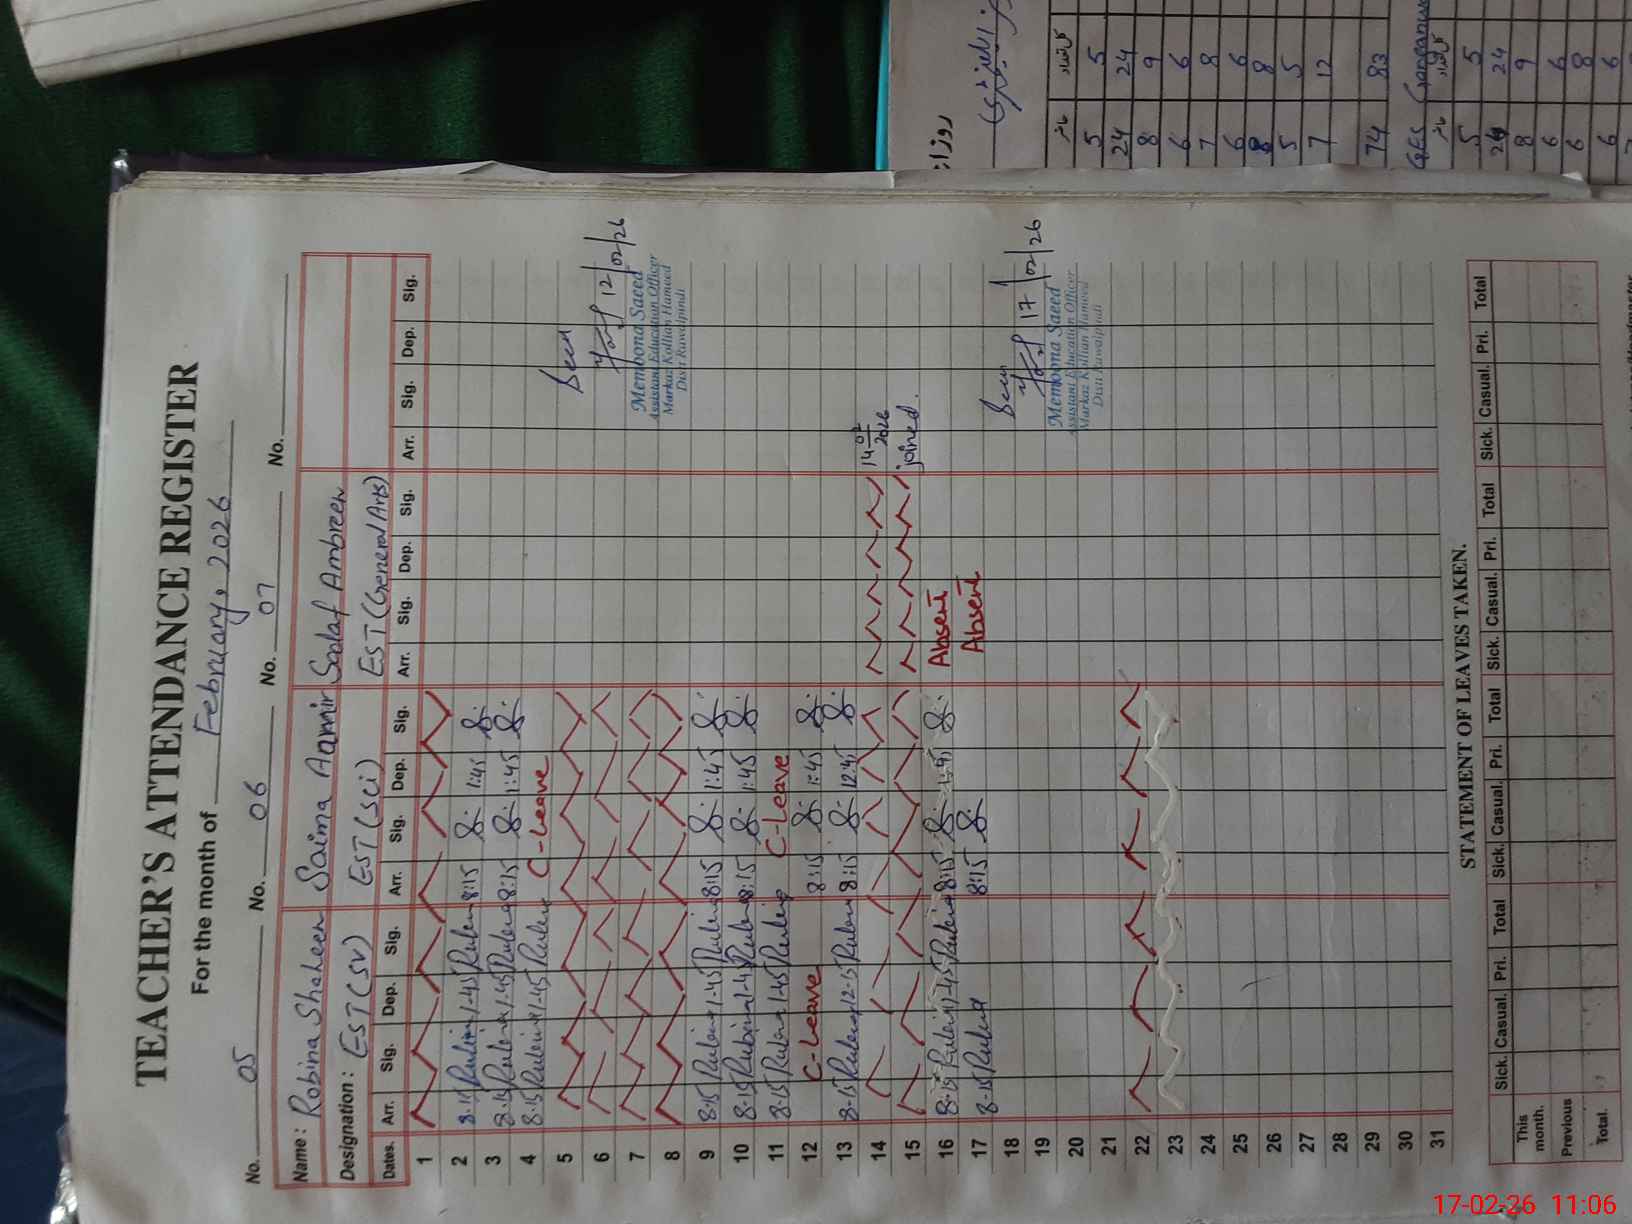 TEACHER'S ATTENDANCE REGISTER
For the month of February, 2026
No. 05 No. 06 No. 07 No.
Name: Robina Shaheen Saima Aamir Sadaf Ambreen
Designation: EST (SV) EST (Sci) EST (General Arts)
Dates. Arr. Sig. Dep. Sig. Arr. Sig. Dep. Sig. Arr. Sig. Dep. Sig. Arr. Sig. Dep. Sig.
1
2 8-15 Rubina 1-45 Rubina 8:15 1:45
3 8-15 Rubina 1-45 Rubina 8:15 1:45
4 8-15 Rubina 1-45 Rubina C-Leave
5
6
7
8
9 8-15 Rubina 1-45 Rubina 8:15 1:45
10 8-15 Rubina 1-45 Rubina 8:15 1:45
11 8-15 Rubina 1-45 Rubina C-Leave
12 C-Leave 8:15 1:45
13 8-15 Rubina 12-15 Rubina 8:15 12:45
14 14 02 2026
15 joined.
16 8-15 Rubina 1-45 Rubina 8:15 1:45 Absent
17 8-15 Rubina 8:15 Absent
18
19
20
21
22
23
24
25
26
27
28
29
30
31
Seen
12/02/26
Memoona Saeed
Assistant Education Officer
Markaz Kollian Hameed
Distt Rawalpindi
Seen
17/02/26
Memoona Saeed
Assistant Education Officer
Markaz Kollian Hameed
Distt Rawalpindi
STATEMENT OF LEAVES TAKEN.
Sick. Casual. Pri. Total Sick. Casual. Pri. Total Sick. Casual. Pri. Total Sick. Casual. Pri. Total
This month.
Previous
Total.
5 5
24 24
8 9
6 6
7 8
6 6
8 8
5 5
7 12
74 83
GES
5 5
24 24
8 9
6 6
6 8
6 6
17-02-26 11:06